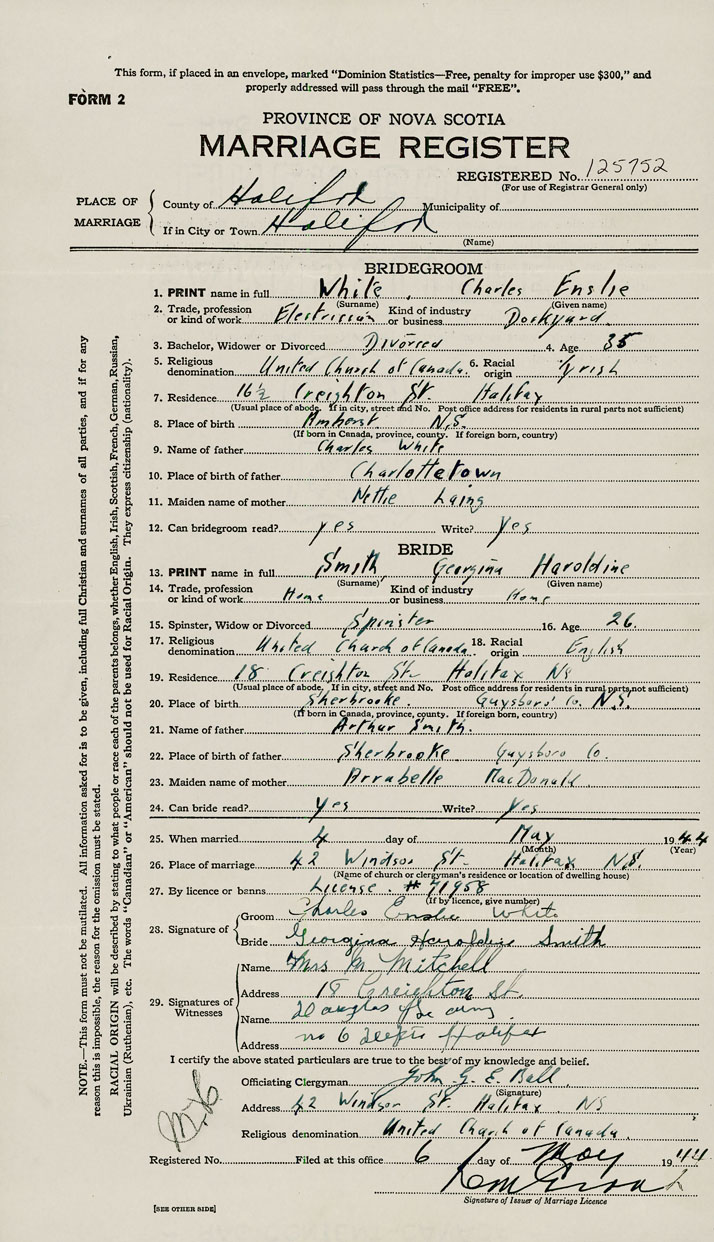 This form, if placed in an envelope, marked "Dominion Statistics—Free, penalty for improper use $300," and
properly addressed will pass through the mail "FREE".
FORM 2
PROVINCE OF NOVA SCOTIA
MARRIAGE REGISTER
REGISTERED No. 125752
(For use of Registrar General only)
PLACE OF MARRIAGE
County of Halifax Municipality of
If in City or Town Halifax
(Name)
BRIDEGROOM
1. PRINT name in full White, Charles Enslie
(Surname) (Given name)
2. Trade, profession or kind of work Electrician Kind of industry or business Dockyard
3. Bachelor, Widower or Divorced Divorced 4. Age 35
5. Religious denomination United Church of Canada. 6. Racial origin Irish
7. Residence 16½ Creighton St. Halifax
(Usual place of abode. If in city, street and No. Post office address for residents in rural parts not sufficient)
8. Place of birth Amherst N.S.
(If born in Canada, province, county. If foreign born, country)
9. Name of father Charles White
10. Place of birth of father Charlottetown
11. Maiden name of mother Nettie Laing
12. Can bridegroom read? yes Write? Yes
BRIDE
13. PRINT name in full Smith, Georgina Haroldine
(Surname) (Given name)
14. Trade, profession or kind of work Home Kind of industry or business Home
15. Spinster, Widow or Divorced Spinster 16. Age 26.
17. Religious denomination United Church of Canada. 18. Racial origin English
19. Residence 18 Creighton St. Halifax NS
(Usual place of abode. If in city, street and No. Post office address for residents in rural parts not sufficient)
20. Place of birth Sherbrooke. Guysboro Co. N.S.
(If born in Canada, province, county. If foreign born, country)
21. Name of father Arthur Smith.
22. Place of birth of father Sherbrooke Guysboro Co.
23. Maiden name of mother Arrabelle MacDonald.
24. Can bride read? Yes Write? Yes
25. When married 4 day of May 1944
(Month) (Year)
26. Place of marriage 42 Windsor St. Halifax N.S.
(Name of church or clergyman's residence or location of dwelling house)
27. By licence or banns License. # 71958
(If by licence, give number)
28. Signature of
Groom Charles Enslie White
Bride Georgina Haroldine Smith
29. Signatures of Witnesses
Name Mrs M. Mitchell
Address 18 Creighton St.
Name Douglas
Address no 6 Halifax
I certify the above stated particulars are true to the best of my knowledge and belief.
Officiating Clergyman John G. E. Ball
(Signature)
Address 42 Windsor St. Halifax NS
Religious denomination United Church of Canada.
Registered No. Filed at this office 6 day of May 1944
Signature of Issuer of Marriage Licence
[SEE OTHER SIDE]
NOTE.—This form must not be mutilated. All information asked for is to be given, including full Christian and surnames of all parties, and if for any
reason this is impossible, the reason for the omission must be stated.
RACIAL ORIGIN will be described by stating to what people or race each of the parents belongs, whether English, Irish, Scottish, French, German, Russian,
Ukrainian (Ruthenian), etc. The words "Canadian" or "American" should not be used for Racial Origin. They express citizenship (nationality).